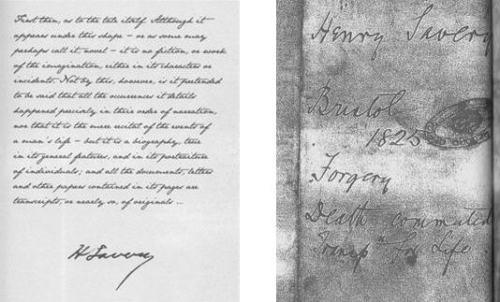 First then, as to the tale itself. Although it
appears under this shape – or as some may
perhaps call it, novel – it is no fiction, or work
of the imagination, either in its characters or
incidents. Not by this, however, is it pretended
to be said that all the occurrences it details
happened precisely in their order of narration,
nor that it is the mere recital of the events of
a man's life – but it is a biography, true
in its general features, and in its portraiture
of individuals; and all the documents, letters
and other papers contained in its pages are
transcripts, or nearly so, of originals ...
H Savery
Henry Savery
Bristol
1825
Forgery
Death commuted
Transp<sup>n</sup> for Life